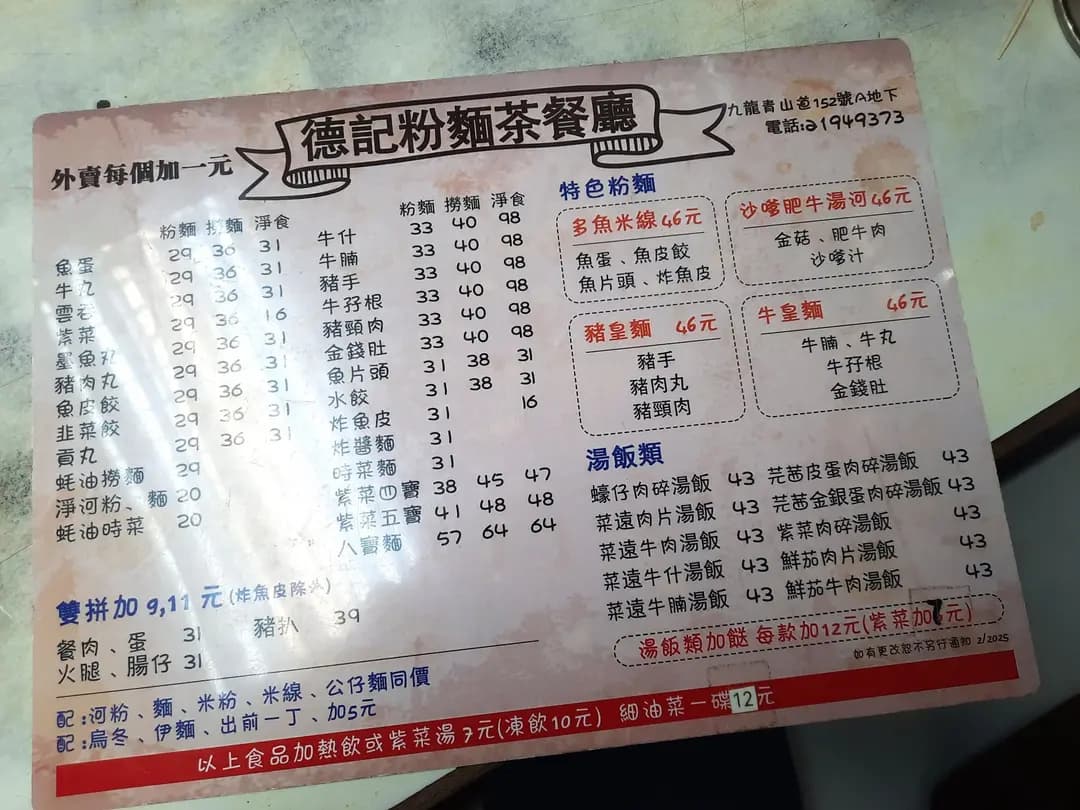 德記粉麵茶餐廳
九龍青山道152號A地下
電話:21949373
外賣每個加一元
粉麵 撈麵 淨食
魚蛋 29 36 31
牛丸 29 36 31
雲吞 29 36 31
紫菜 29 36 16
墨魚丸 29 36 31
豬肉丸 29 36 31
魚皮餃 29 36 31
韭菜餃 29 36 31
貢丸 29 36 31
蚝油撈麵 29
淨河粉、麵 20
蚝油時菜 20
粉麵 撈麵 淨食
牛什 33 40 98
牛腩 33 40 98
豬手 33 40 98
牛孖根 33 40 98
豬頸肉 33 40 98
金錢肚 33 40 98
魚片頭 31 38 31
水餃 31 38 31
炸魚皮 31 16
炸醬麵 31
時菜麵 31
紫菜四寶 38 45 47
紫菜五寶 41 48 48
八寶麵 57 64 64
特色粉麵
多魚米線46元
魚蛋、魚皮餃
魚片頭、炸魚皮
沙嗲肥牛湯河46元
金菇、肥牛肉
沙嗲汁
豬皇麵 46元
豬手
豬肉丸
豬頸肉
牛皇麵 46元
牛腩、牛丸
牛孖根
金錢肚
湯飯類
蠔仔肉碎湯飯 43 芫茜皮蛋肉碎湯飯 43
菜遠肉片湯飯 43 芫茜金銀蛋肉碎湯飯 43
菜遠牛肉湯飯 43 紫菜肉碎湯飯 43
菜遠牛什湯飯 43 鮮茄肉片湯飯 43
菜遠牛腩湯飯 43 鮮茄牛肉湯飯 43
湯飯類加餸 每款加12元(紫菜加7元)
如有更改恕不另行通知 2/2025
雙拼加 9,11 元(炸魚皮除外)
餐肉、蛋 31 豬扒 39
火腿、腸仔 31
配:河粉、麵、米粉、米線、公仔麵同價
配:烏冬、伊麵、出前一丁、加5元
以上食品加熱飲或紫菜湯7元(凍飲10元) 細油菜一碟12元